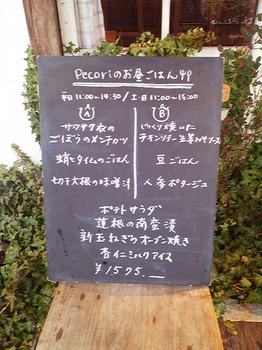 Pecoriのお昼ごはん
平日 11:00〜14:30 / 土・日 11:00〜15:00
A
サクサク衣の
ごぼうのメンチカツ
蛸とタイムのごはん
切干大根の味噌汁
B
じっくり焼いた
チキンソテー 生姜みそソース
豆ごはん
人参ポタージュ
ポテトサラダ
蓮根の南蛮漬
新玉ねぎのオーブン焼き
杏仁ミルクアイス
¥1575.